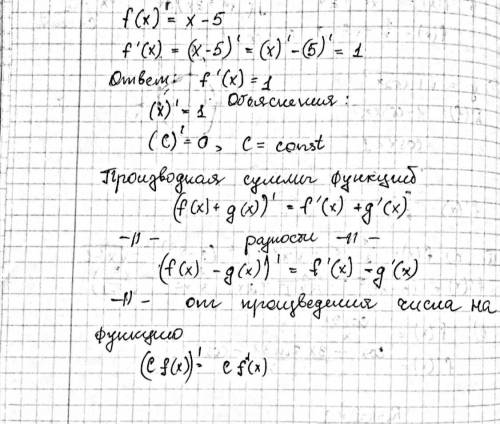 f(x)' = x - 5
f'(x) = (x-5)' = (x)' - (5)' = 1
Ответ: f'(x) = 1
Объяснения:
(x)' = 1
(C)' = 0, C = const
Производная суммы функций
(f(x) + g(x))' = f'(x) + g'(x)
-11- разности -11-
(f(x) - g(x))' = f'(x) - g'(x)
-11- от произведения числа на
функцию
(C f(x))' = C f'(x)